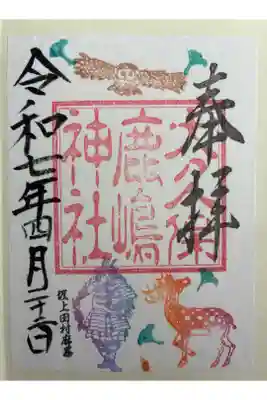 奉拝
鹿嶋
神社
令和七年四月二十二日
坂上田村麻呂